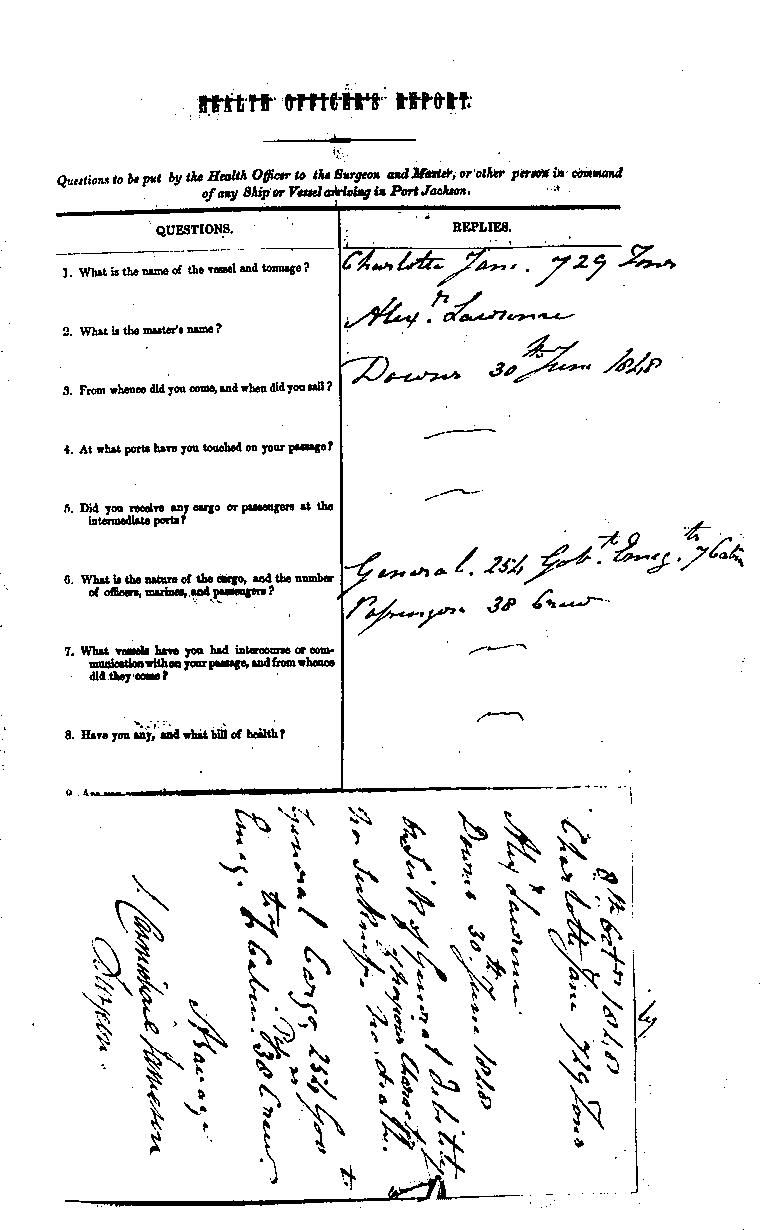 HEALTH OFFICER'S REPORT.
Questions to be put by the Health Officer to the Surgeon and Master, or other person in command
of any Ship or Vessel arriving in Port Jackson.
QUESTIONS.
REPLIES.
1. What is the name of the vessel and tonnage?
Charlotte Jane. 729 Tons
2. What is the master's name?
Alexr. Lawrence
3. From whence did you come, and when did you sail?
Downs 30th June 1848
4. At what ports have you touched on your passage?
5. Did you receive any cargo or passengers at the
intermediate ports?
6. What is the nature of the cargo, and the number
of officers, marines, and passengers?
General. 254 Govt. Emig.ts 7 Cabin
Passengers 38 Crew
7. What vessels have you had intercourse or com-
munication with on your passage, and from whence
did they come?
8. Have you any, and what bill of health?
9. Are
8th Octr 1848
Charlotte Jane 729 Tons
Alexr Lawrence
Downs 30th June 1848
Sick of General Debility
no
no death.
General Cargo, 254 Gov
Emig. Cabin. 38 Crew.
A Savage
Surgeon.